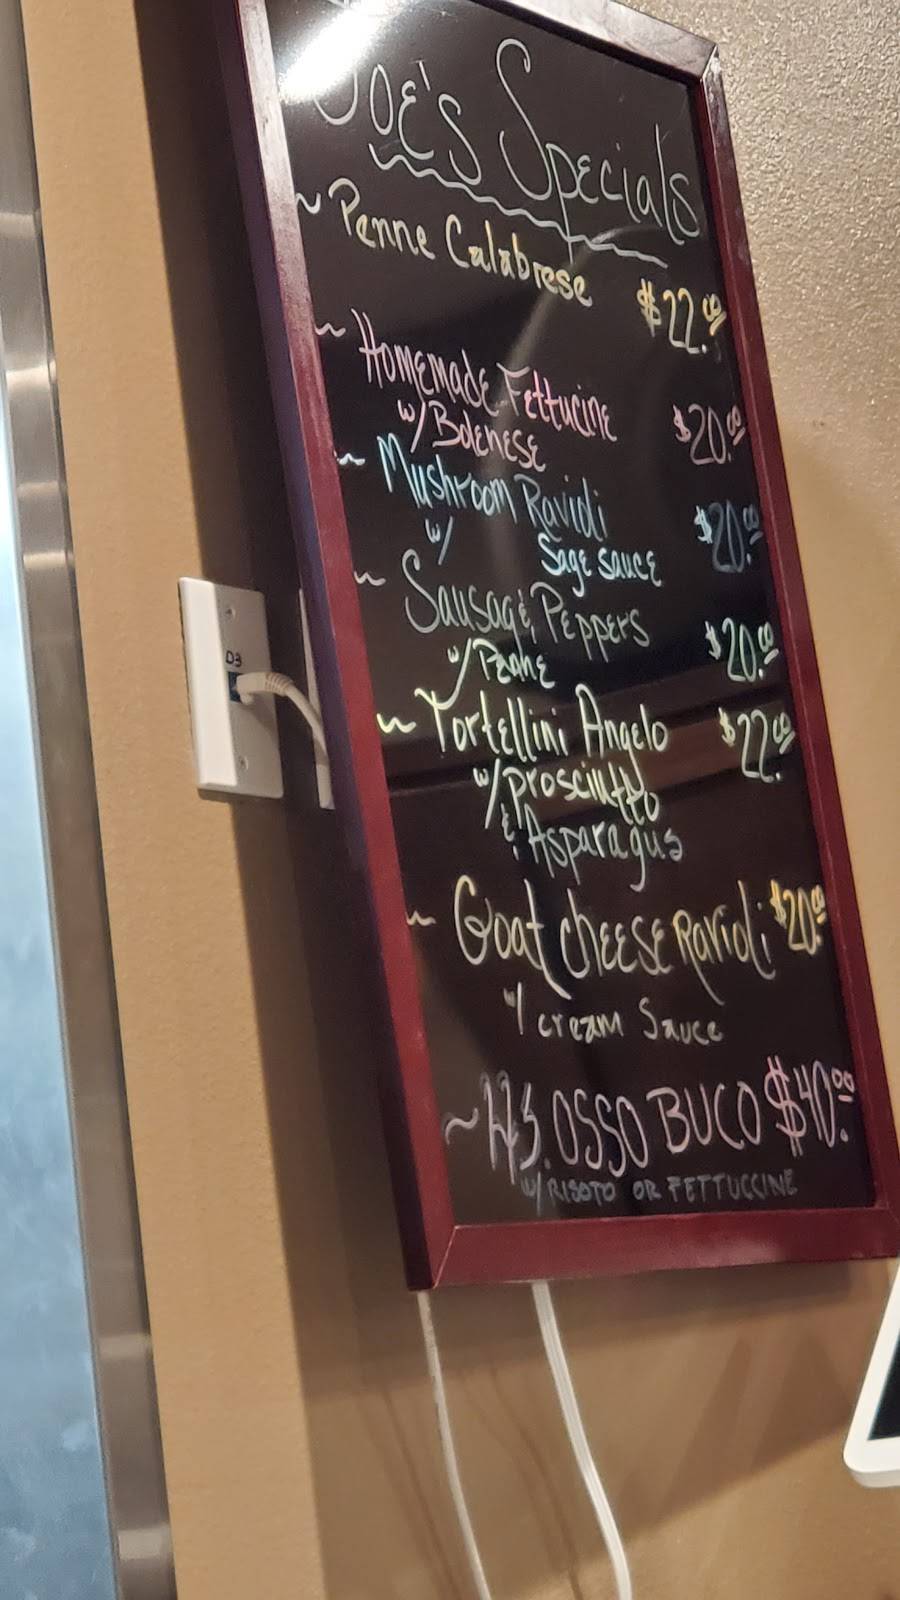 Joe's Specials
~ Penne Calabrese $22.00
~ Homemade Fettucine
w/ Bolenese $20.00
~ Mushroom Ravioli
w/ Sage sauce $20.00
~ Sausage, Peppers
w/ Penne $20.00
~ Tortellini Angelo $22.00
w/ Prosciutto
& Asparagus
~ Goat cheese Ravioli $20.00
w/ cream Sauce
~ OSSO BUCO $40.00
w/ RISOTO OR FETTUCCINE
D3